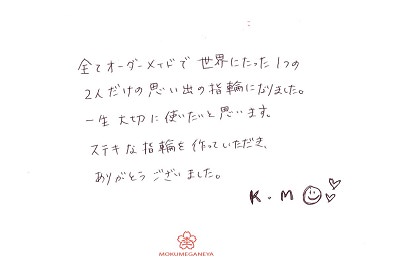 全てオーダーメイドで世界にたった1つの
2人だけの思い出の指輪になりました。
一生大切に使いたいと思います。
ステキな指輪を作っていただき、
ありがとうございました。
K.M
MOKUMEGANEYA